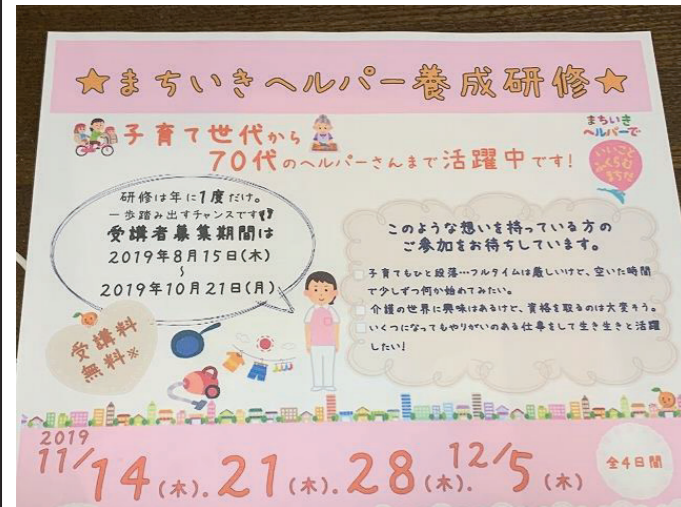 ★まちいきヘルパー養成研修★
子育て世代から
70代のヘルパーさんまで活躍中です!
まちいき
ヘルパーで
いいこと
ふくらむ
まちだ
研修は年に1度だけ。
一歩踏み出すチャンスです!!
受講者募集期間は
2019年8月15日(木)
~
2019年10月21日(月)
受講料
無料※
このような想いを持っている方の
ご参加をお待ちしています。
子育てもひと段落…フルタイムは厳しいけど、空いた時間
で少しずつ何か始めてみたい。
介護の世界に興味はあるけど、資格を取るのは大変そう。
いくつになってもやりがいのある仕事をして生き生きと活躍
したい!
2019
11/14(木).21(木).28(木).12/5(木)
全4日間